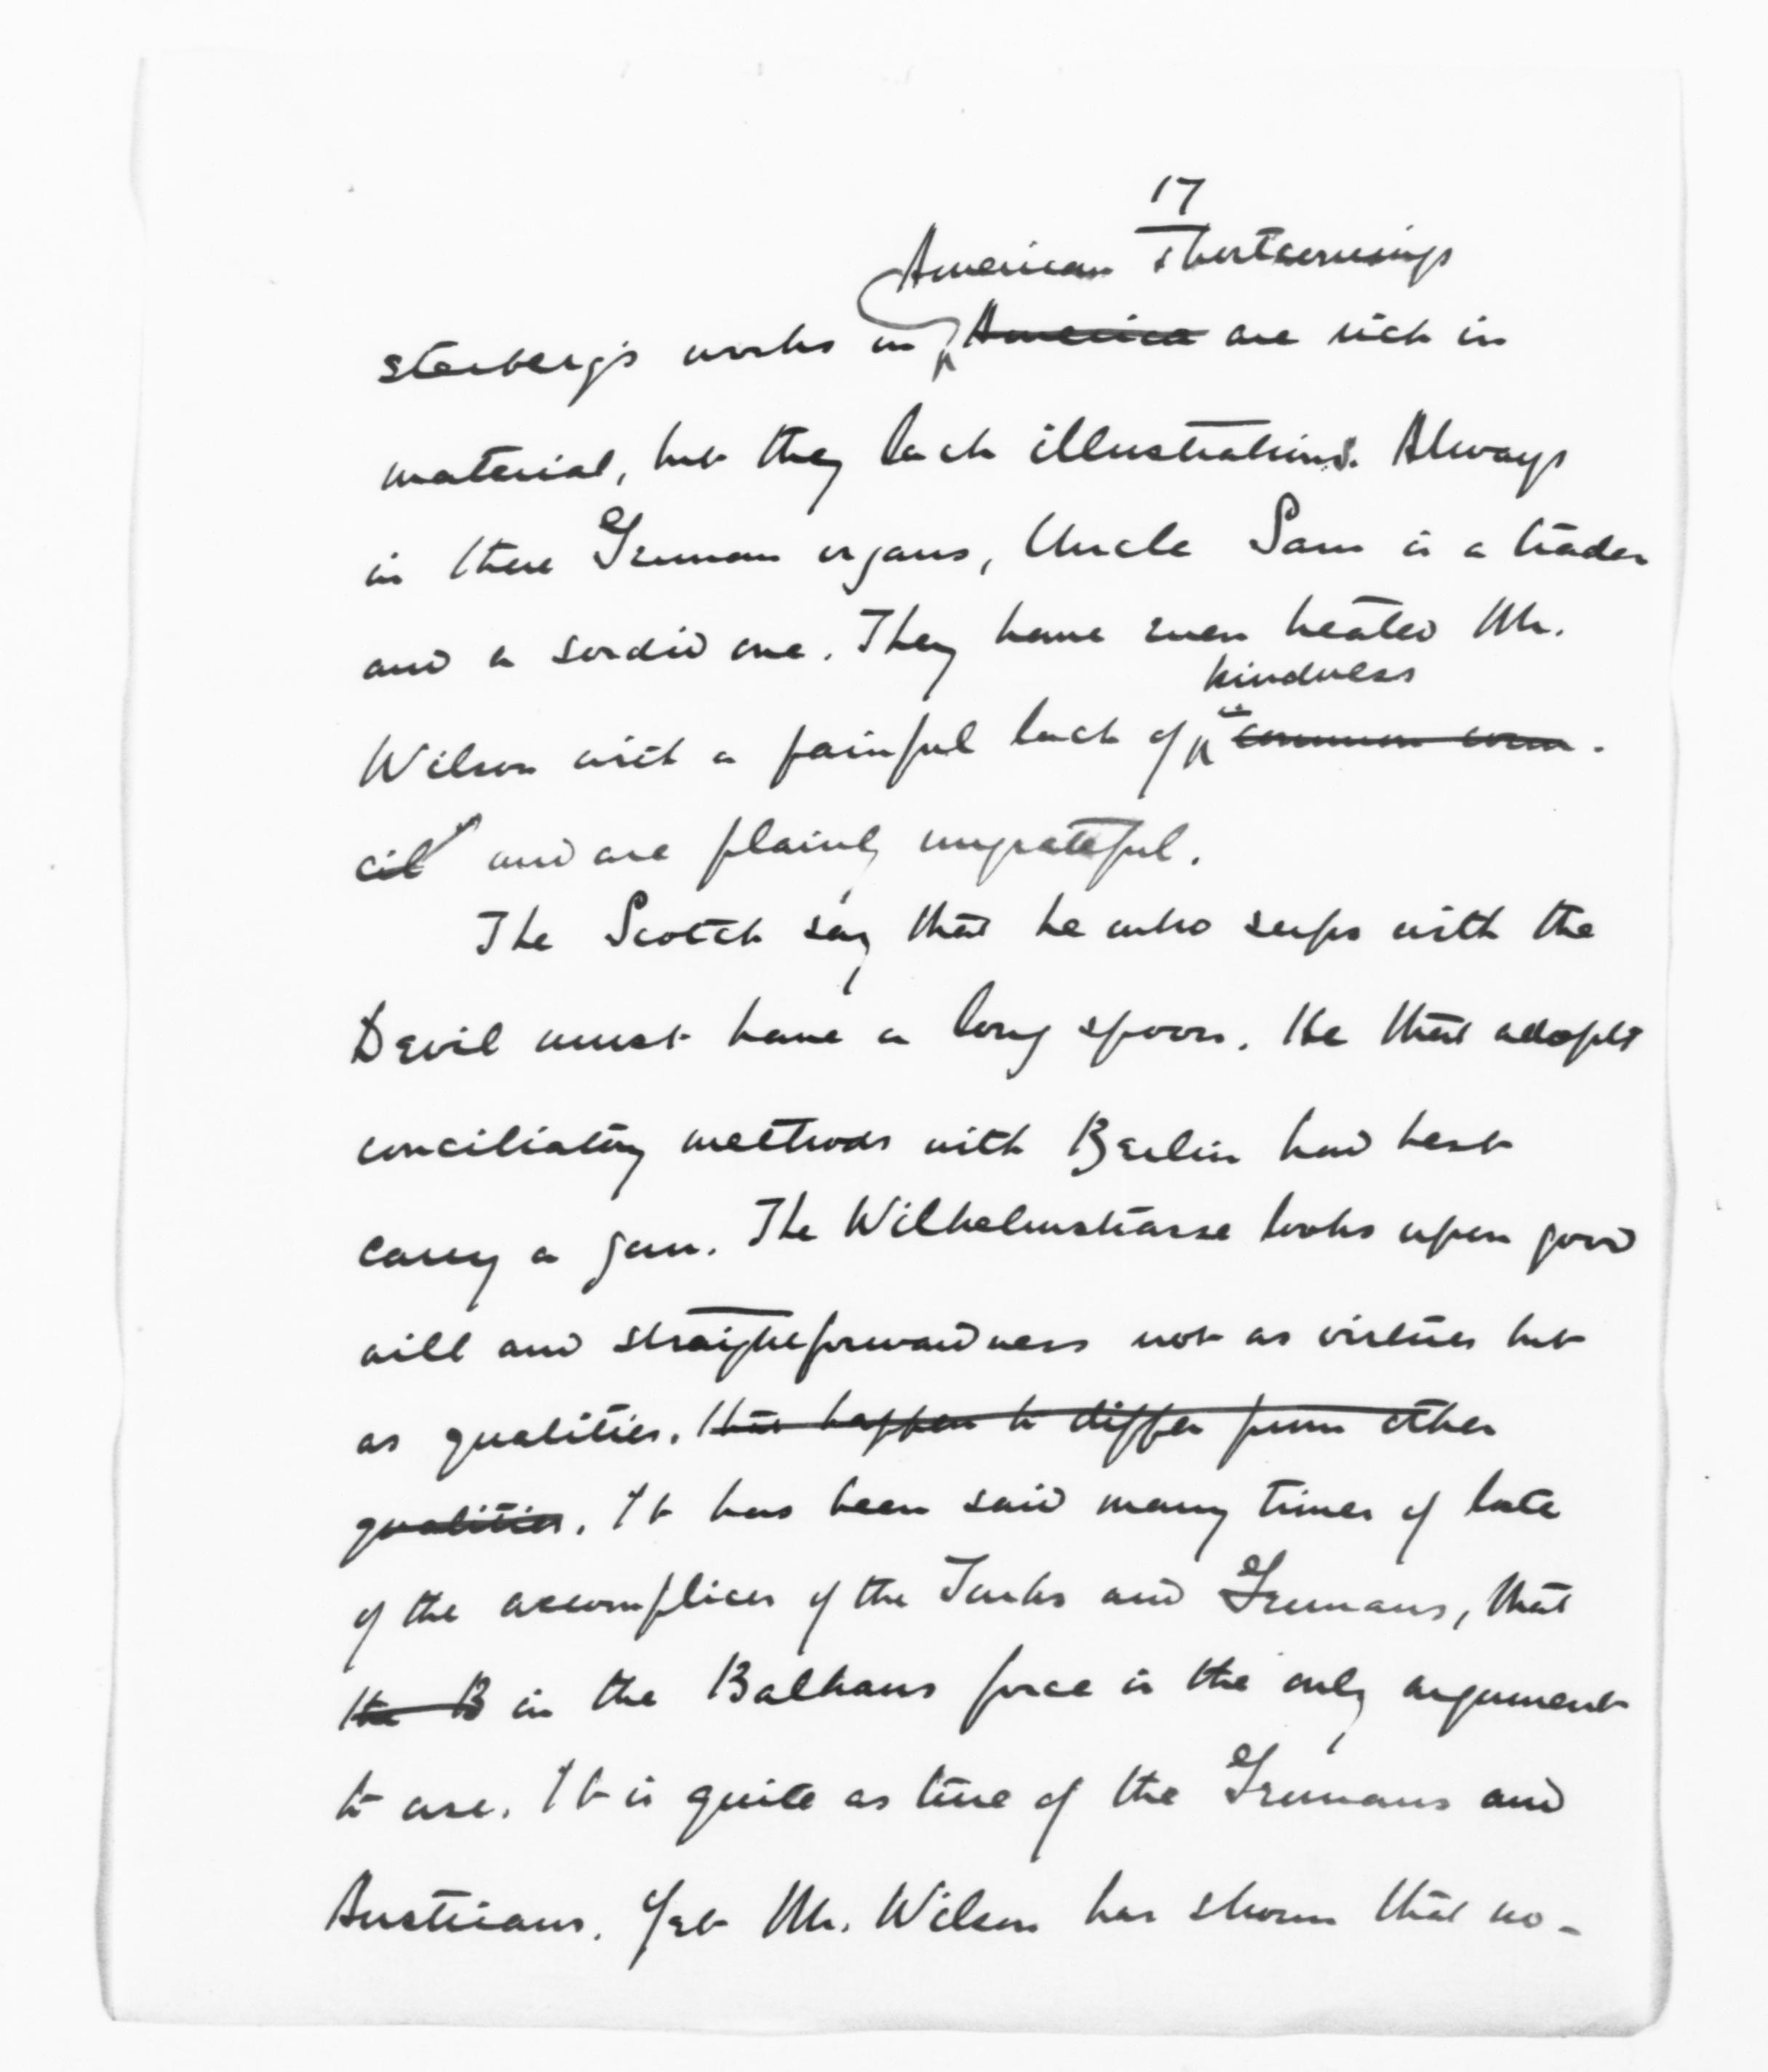 17
American shortcomings
sterberg's works on America are rich in
material, but they lack illustrations. Always
in these German organs, Uncle Sam is a trader
and a sordid one. They have even treated Mr.
kindness
Wilson with a painful lack of common coun-
cil and are plainly ungrateful.
The Scotch say that he who sups with the
Devil must have a long spoon. He that adopts
conciliatory methods with Berlin had best
carry a gun. The Wilhelmstrasse looks upon good
will and straightforwardness not as virtues but
as qualities. that happen to differ from other
qualities. It has been said many times of late
of the accomplices of the Turks and Germans, that
the B in the Balkans force is the only argument
to use. It is quite as true of the Germans and
Austrians. Yet Mr. Wilson has shown that no-